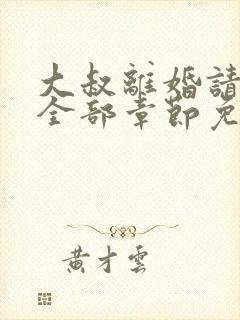 大叔離婚請
全部章節免
黃才雲